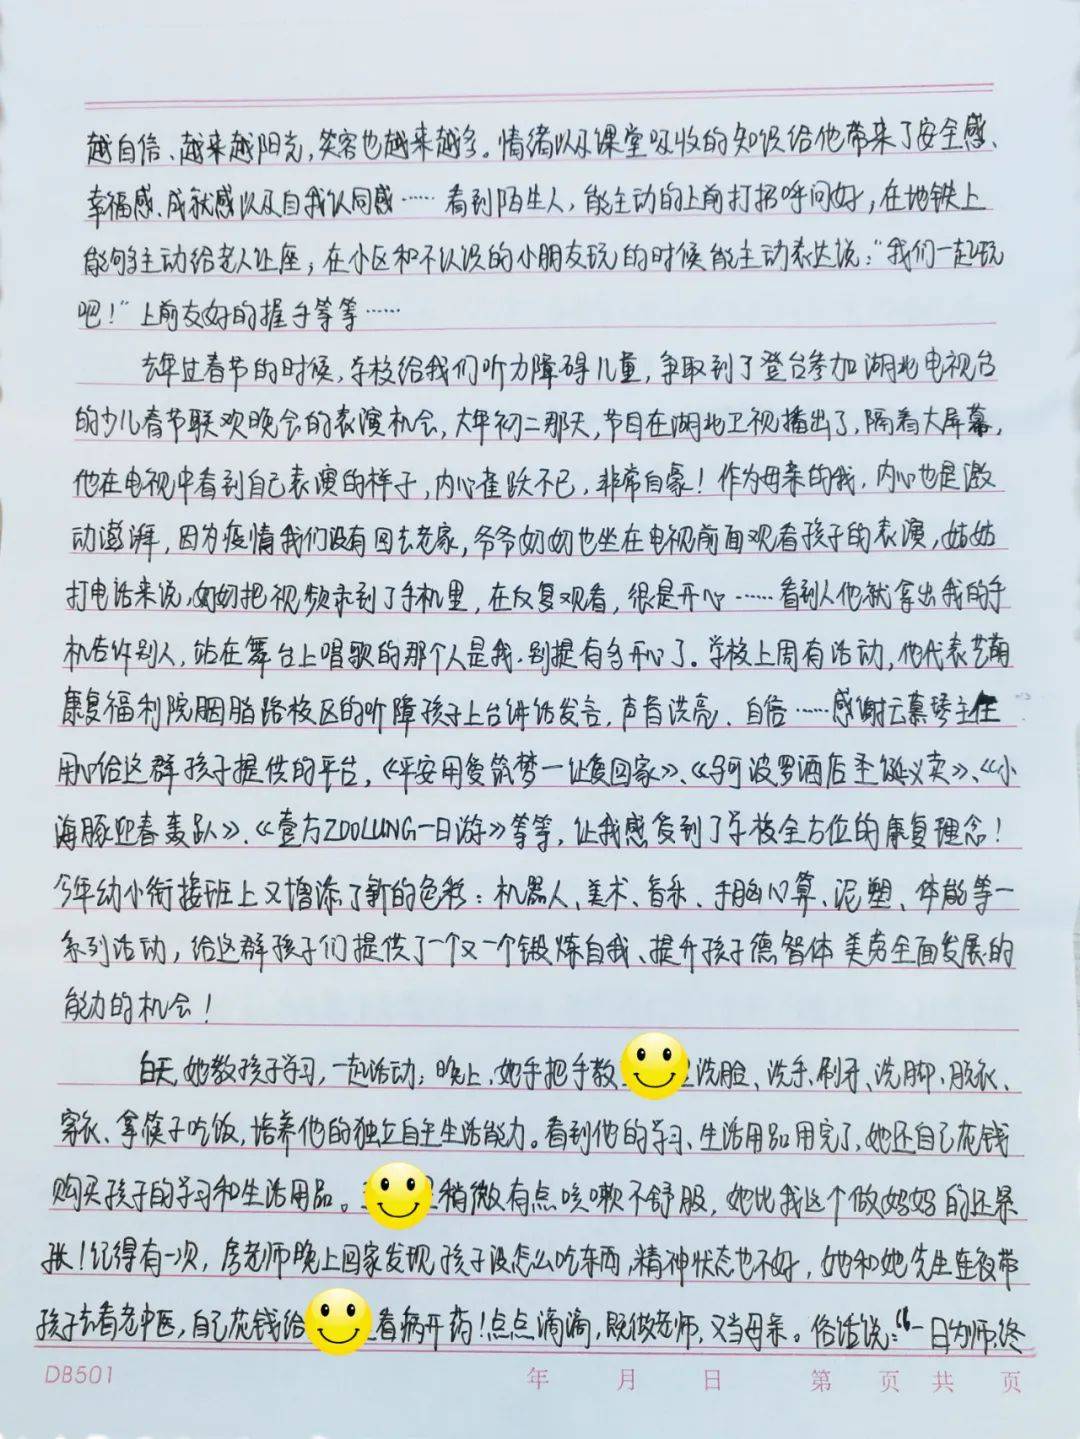 越自信、越来越阳光,笑容也越来越多。情绪以及课堂吸收的知识给他带来了安全感、
幸福感、成就感以及自我认同感……看到陌生人,能主动的上前打招呼问好,在地铁上
能够主动给老人让座;在小区和不认识的小朋友玩的时候能主动表达说:“我们一起玩
吧!”上前友好的握手等等……
去年过春节的时候,学校给我们听力障碍儿童,争取到了登台参加湖北电视台
的少儿春节联欢晚会的表演机会,大年初二那天,节目在湖北卫视播出了,隔着大屏幕,
他在电视中看到自己表演的样子,内心雀跃不已,非常自豪!作为母亲的我,内心也是激
动澎湃,因为疫情我们没有回去老家,爷爷奶奶也坐在电视前面观看孩子的表演,姑姑
打电话来说,奶奶把视频录到了手机里,在反复观看,很是开心……看到人他就拿出我的手
机告诉别人,站在舞台上唱歌的那个人是我,别提有多开心了。学校上周有活动,他代表艺萌
康复福利院胭脂路校区的听障孩子上台讲话发言,声音洪亮、自信……感谢云慕琴主任
用心给这群孩子提供的平台,《平安用爱筑梦一让爱回家》、《阿波罗酒店圣诞义卖》、《小
海豚迎春轰趴》、《壹方ZOOLUNG一日游》等等,让我感受到了学校全方位的康复理念!
今年幼小衔接班上又增添了新的色彩:机器人、美术、音乐、手脑心算、泥塑、体能等一
系列活动,给这群孩子们提供了一个又一个锻炼自我、提升孩子德智体美劳全面发展的
能力的机会!
白天,她教孩子学习,一起活动;晚上,她手把手教洗脸、洗手、刷牙、洗脚、脱衣、
穿衣、拿筷子吃饭,培养他的独立自主生活能力。看到他的学习、生活用品用完了,她还自己花钱
购买孩子的学习和生活用品。稍微有点咳嗽不舒服,她比我这个做妈妈的还紧
张!记得有一次,房老师晚上回家发现孩子没怎么吃东西,精神状态也不好,她和她先生连夜带
孩子去看老中医,自己花钱给看病开药!点点滴滴,既做老师,又当母亲。俗话说:“一日为师,终
DB501 年 月 日 第 页 共 页